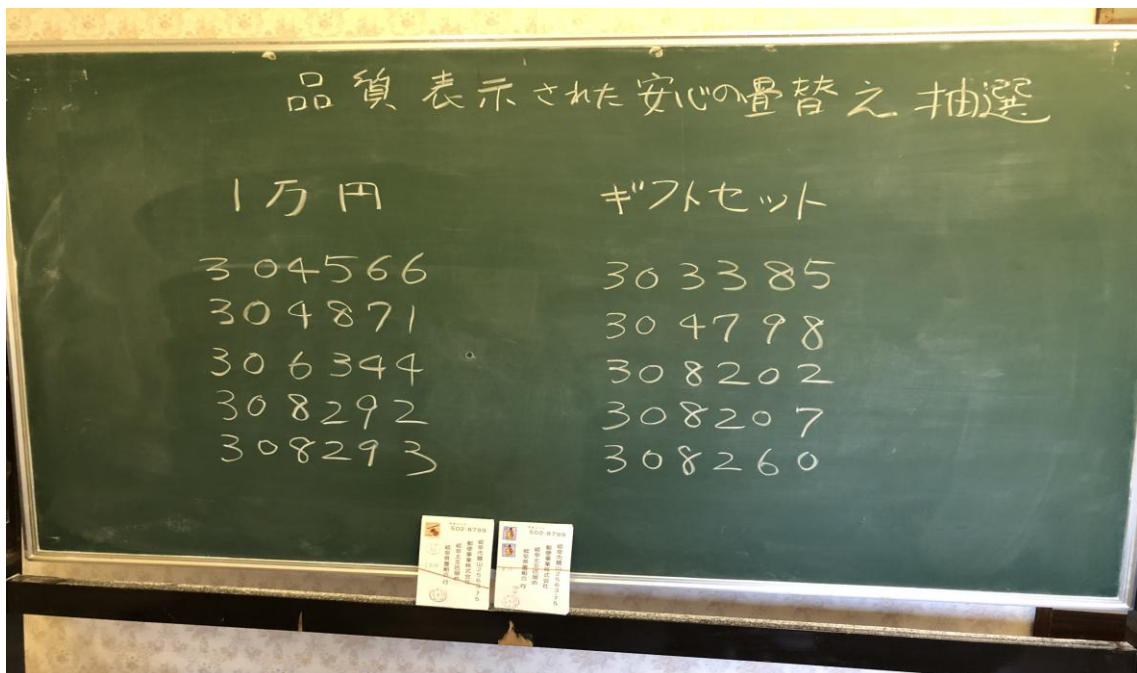 品質表示された安心の畳替え抽選
1万円
304566
304871
306344
308292
308293
ギフトセット
303385
304798
308202
308207
308260
502-8799
502-8799